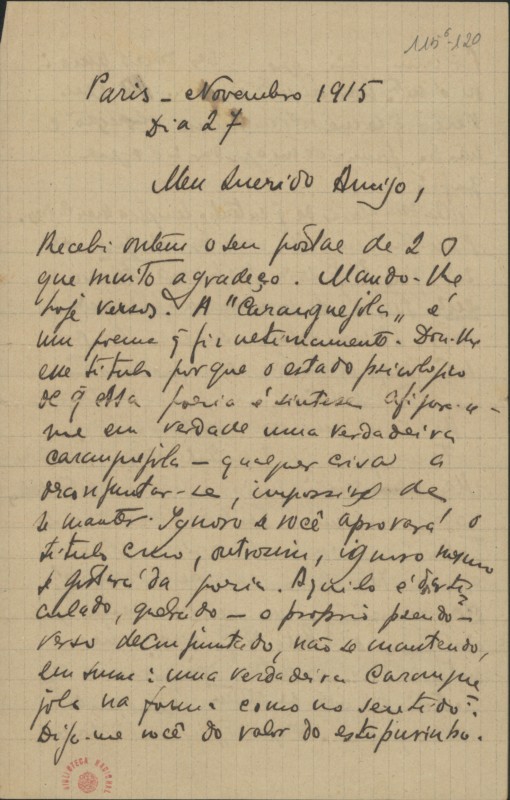 115⁶-120
Paris - Novembro 1915
Dia 27
Meu Querido Amigo,
Recebi ontem o seu postal de 20
que muito agradeço. Mando-lhe
hoje versos. A "Caranguejola" é
um poema q̃ fiz ultimamente. Dou-lhe
este titulo porque o estado psicologico
de q̃ essa poesia é sintese afigura-
me em verdade uma verdadeira
caranguejola - qualquer coisa a
desconjuntar-se, impossivel de
se manter. Ignoro se você aprovará o
titulo como, outrosim, ignoro mesmo
se gostará da poesia. Aquilo é desarti
culado, quebrado - o proprio pseudo-
verso desconjuntado, não se mantendo,
em suma: uma verdadeira carangue
jola na forma como no sentido?
Diga-me você do valor do estuporinho.
BIBLIOTECA NACIONAL